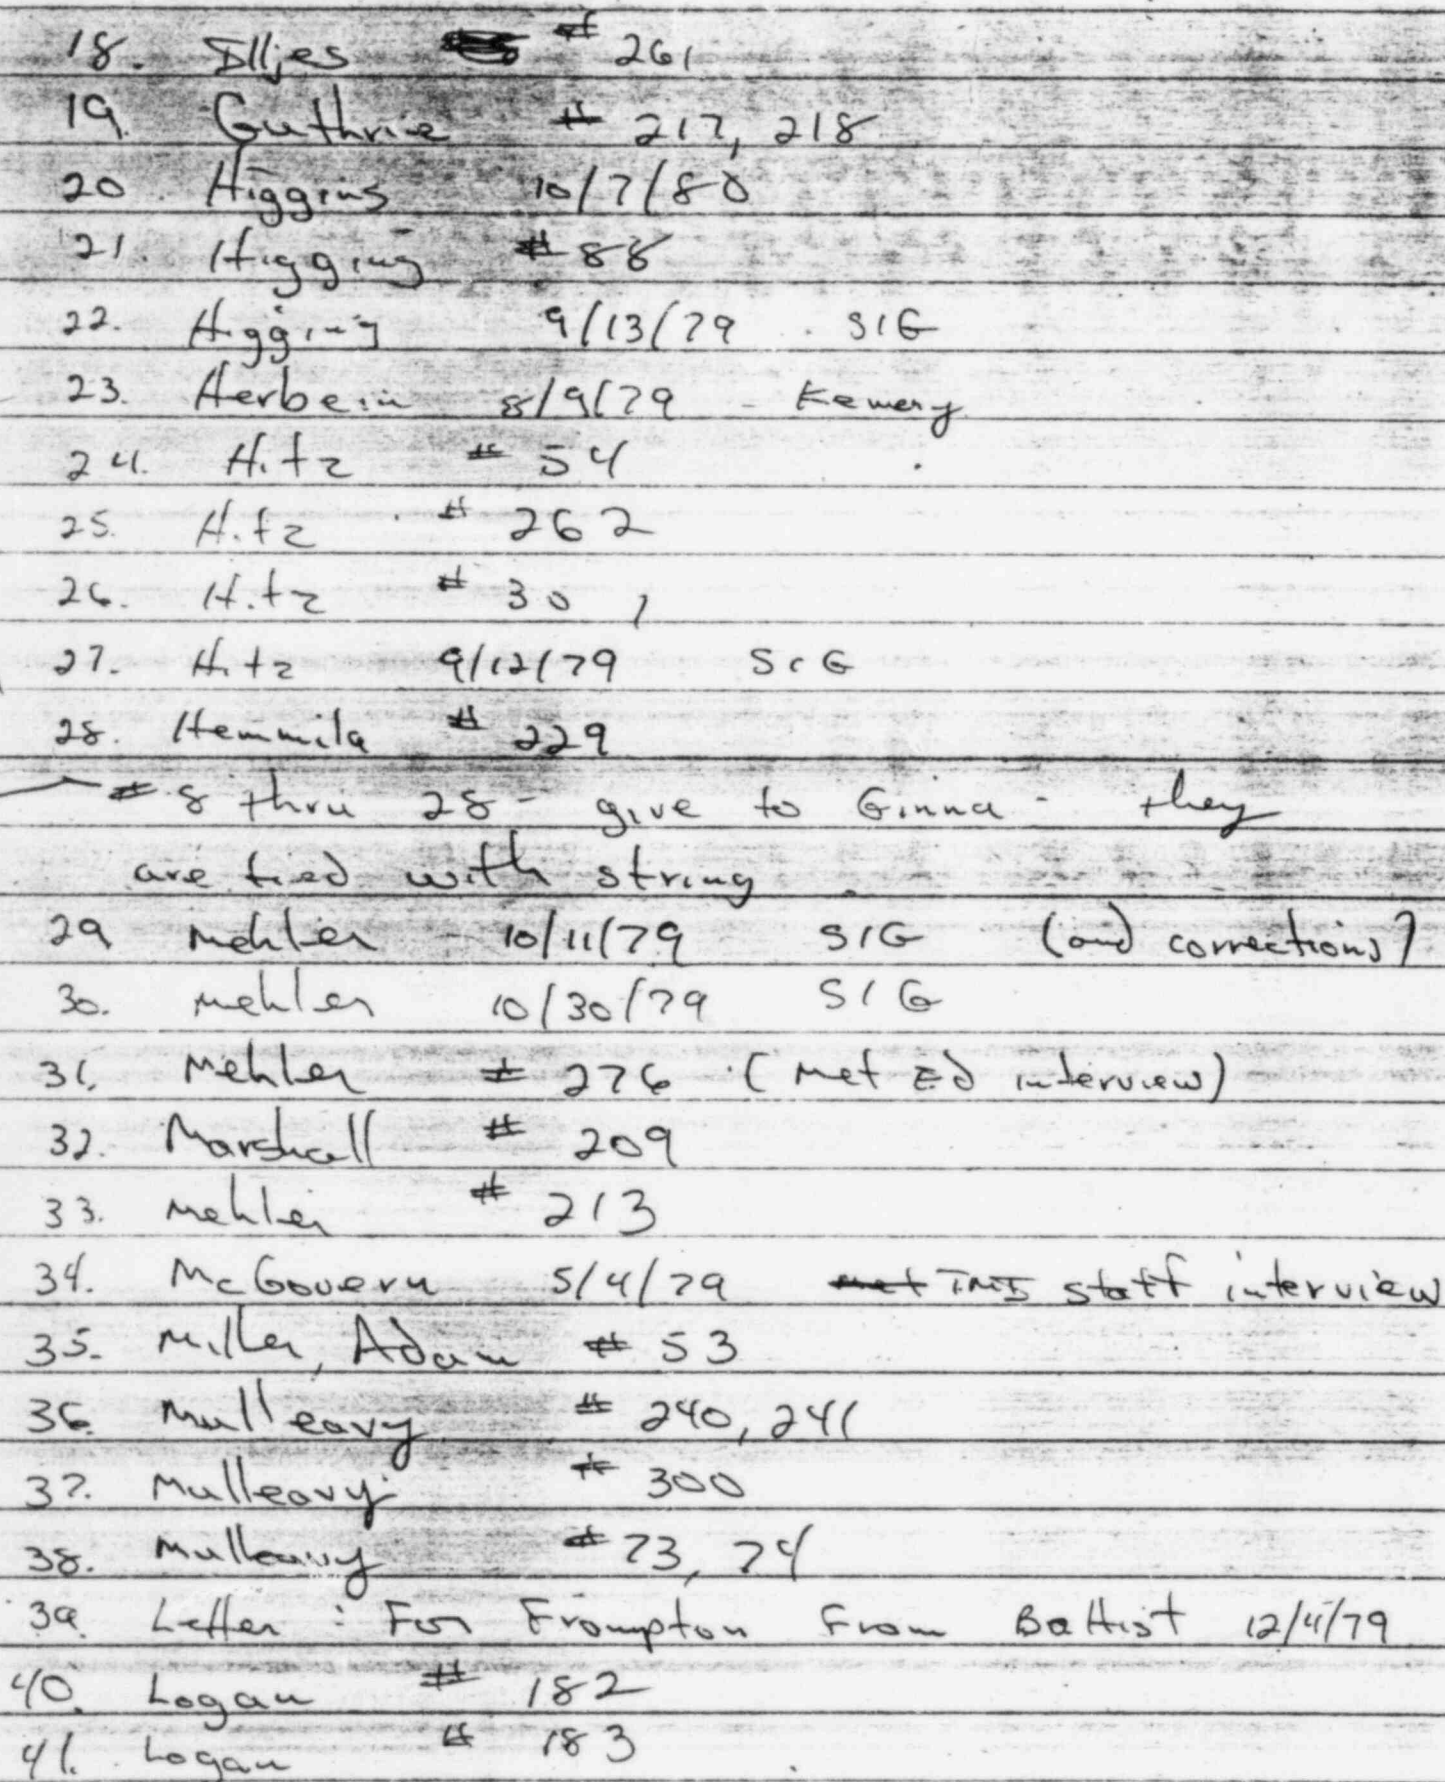 18. Illjes # 261
19. Guthrie # 217, 218
20 Higgins 10/7/80
21. Higgins # 88
22. Higgins 9/13/79 SIG
23. Herbein 8/9/79 - Kemeny
24. Hitz # 54
25. Hitz # 262
26. Hitz # 30,
27. Hitz 9/12/79 SIG
28. Hemmila # 229
# 8 thru 28 - give to Ginna - they
are tied with string
29 Mehler 10/11/79 SIG (and corrections)
30. Mehler 10/30/79 SIG
31. Mehler # 276 (Met Ed interview)
32. Marshall # 209
33. Mehler # 213
34. McGovern 5/4/79 met TMI staff interview
35. Miller, Adam # 53
36. Mulleavy # 240, 241
37. Mulleavy # 300
38. Mulleavy # 73, 74
39. Letter: For Frampton From Battist 12/4/79
40. Logan # 182
41. Logan # 183